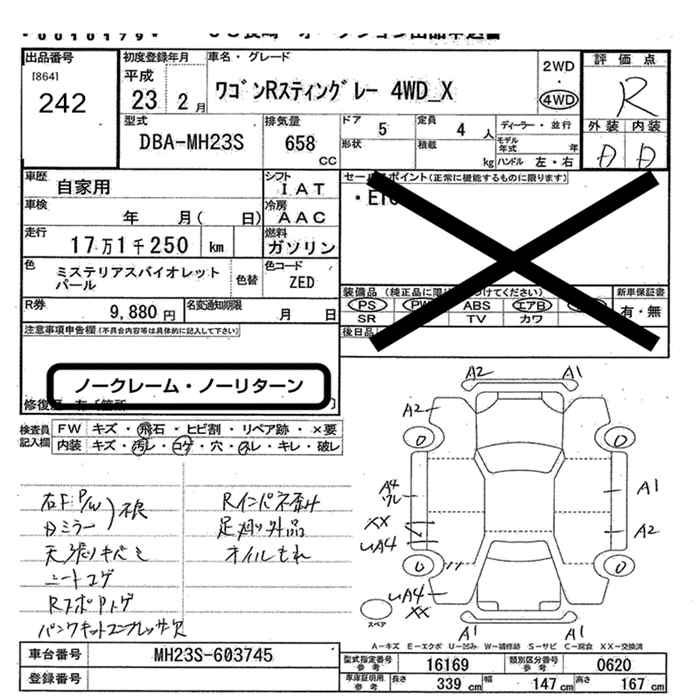 00010179
出品番号
[864]
242
初度登録年月
平成
23 2月
車名・グレード
ワゴンRスティングレー 4WD_X
2WD
・
4WD
評価点
R
外装 内装
D D
型式
DBA-MH23S
排気量
658
CC
ドア 5
定員 4 人
形状
積載 kg
ディーラー・並行
モデル年式 年
ハンドル 左・右
車歴
自家用
シフト
IAT
車検
年 月( 日)
冷房
AAC
走行
17万1千250 km
燃料
ガソリン
色
ミステリアスバイオレット
パール
色替
色コード
ZED
R券
9,880 円
名変通知期限
月 日
セールスポイント(正常に機能するものに限ります)
PS ABS エアB
SR TV カワ
新車保証書
有・無
後日品
注意事項申告欄(不具合内容等は具体的に記入して下さい)
ノークレーム・ノーリターン
検査員
記入欄
FW キズ・飛石・ヒビ割・リペア跡・×要
内装 キズ・汚レ・コゲ・穴・スレ・キレ・破レ
右F P/W
Dミラー
不良
天張りキバミ
シートコゲ
パンクキットコンプレッサ欠
Rインパネ歪み
足廻り外品
オイルもれ
A2 A1
A2
A4
ワレ
XX
A4
A4
XX
A1
A2
A1 A1
スペア
A-キズ E-エクボ U-凹み W-補修跡 S-サビ C-腐食 XX-交換済
車台番号
MH23S-603745
登録番号
型式指定番号
参考
16169
類別区分番号
参考
0620
車庫証明用
参考
長さ 339 cm
幅 147 cm
高さ 167 cm